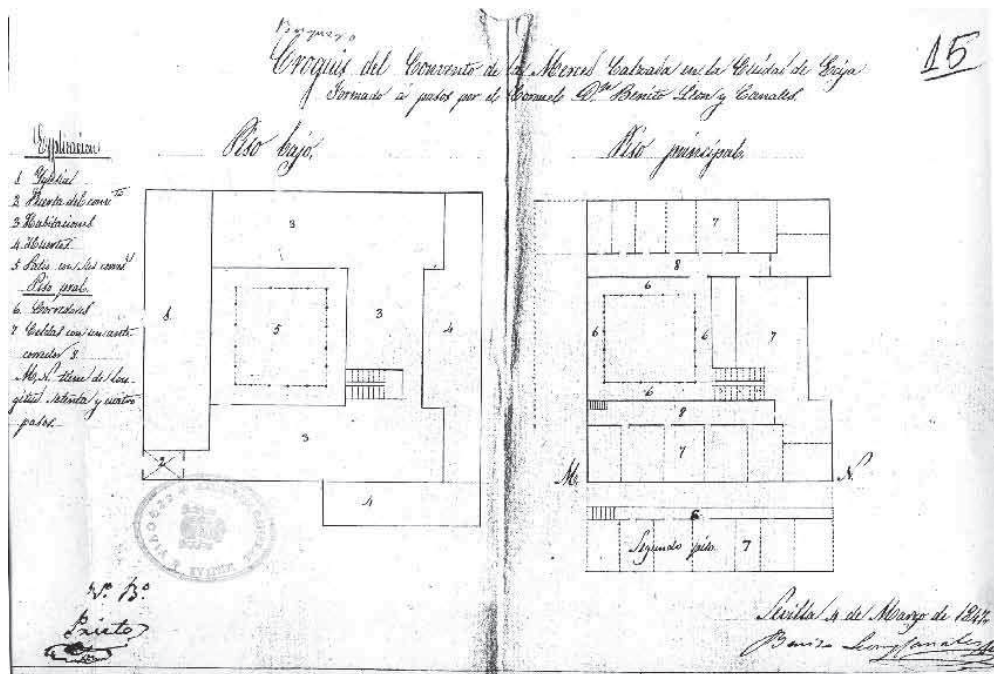 15
Croquis del Convento de la Merced Calzada en la Ciudad de Ecija
Formado á pasos por el Coronel Dn Benito Leon y Canales.
Piso bajo.
Piso principal.
Esplicacion
1 Yglesia
2 Puerta del convto
3 Habitaciones
4 Huertas
5 Patio con sus
Piso pral.
6 Corredores
7 Celdas con un
corredor 8
M, N. tiene de lon-
gitud setenta y cuatro
pasos.
3
1
5
3
4
3
2
4
7
8
6
6
6
7
6
8
7
M.
N.
6
Segundo piso. 7
Vo. Bo.
Prieto
Sevilla 4 de Marzo de 1847
Benito Leon y Canales